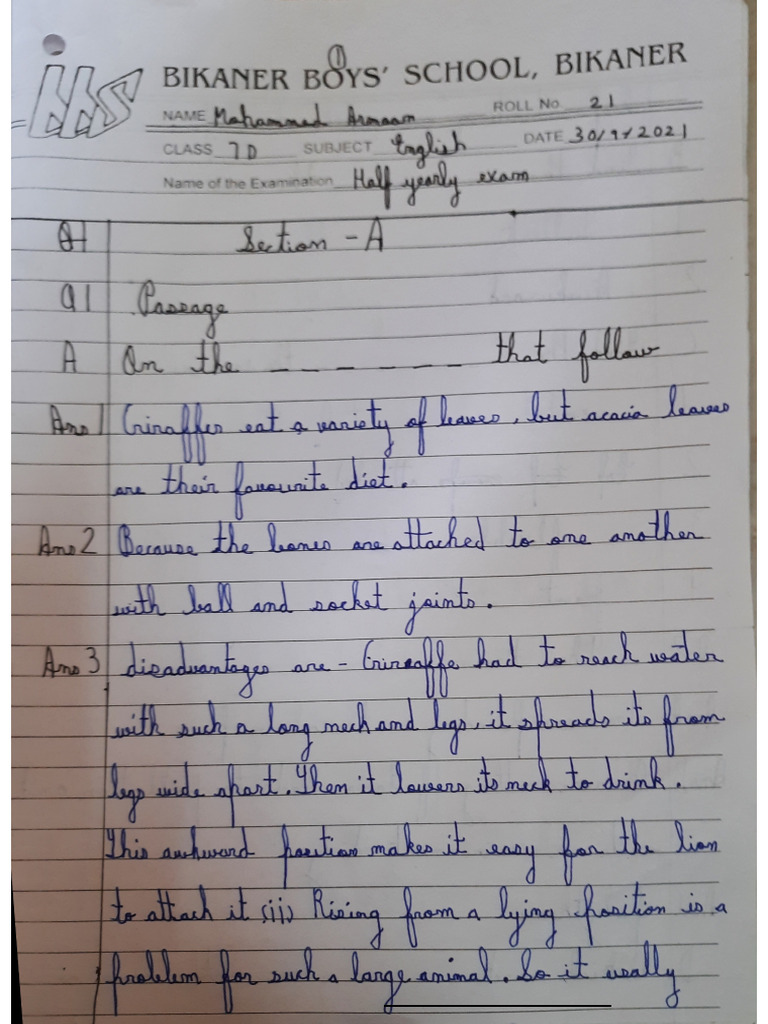 ①
BBS BIKANER BOYS' SCHOOL, BIKANER
NAME Mohammed Armaan ROLL No. 21
CLASS 7D SUBJECT English DATE 30/9/2021
Name of the Examination Half yearly exam
Section - A
Q1 Passage
A On the _ _ _ _ _ _ that follow
Ans 1 Giraffes eat a variety of leaves, but acacia leaves
are their favourite diet.
Ans 2 Because the bones are attached to one another
with ball and socket joints.
Ans 3 disadvantages are - Giraffe had to reach water
with such a long neck and legs, it spreads its from
legs wide apart. Then it lowers its neck to drink.
This awkward position makes it easy for the lion
to attach it (ii) Rising from a lying position is a
problem for such a large animal. So it usally